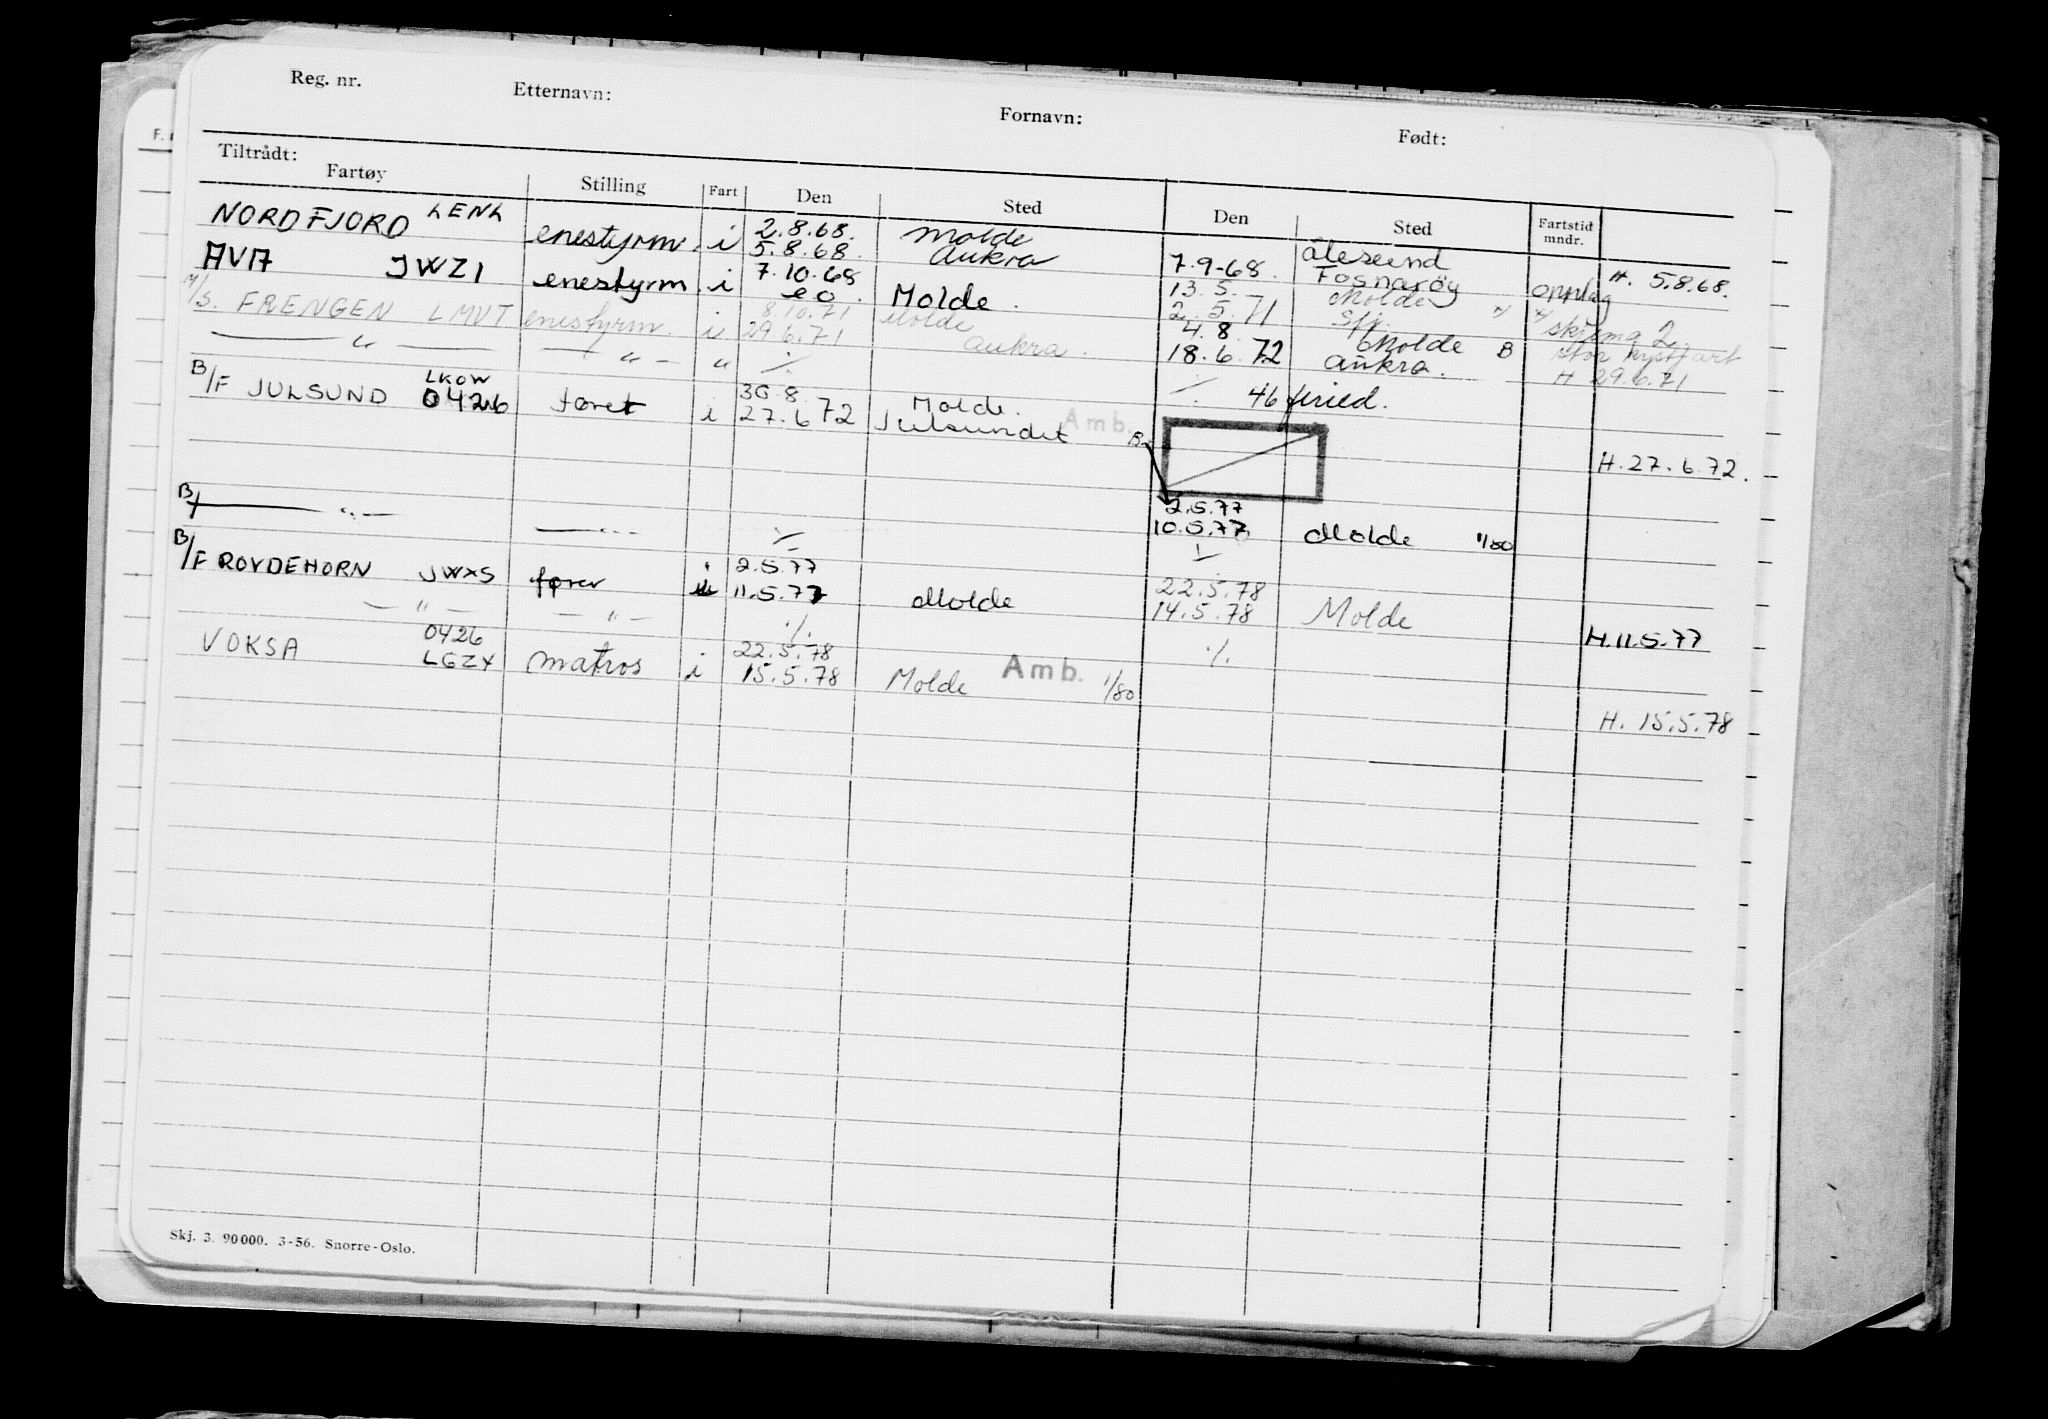 Reg. nr. Etternavn: Fornavn: Født:
Tiltrådt:
Fartøy Stilling Fart Den Sted Den Sted Fartstid mndr.
NORDFJORD LENL enestyrm. i 2.8.68. Molde
5.8.68. Aukra 7.9-68. Ålesund H. 5.8.68.
AVA JWZI enestyrm. i 7.10.68 Fosnavåg opplag
eo. Molde. 13.5. Molde
M/S. FRENGEN LMVT enestyrm. i 8.10.71 Molde 2.5.71 Sfj. skjema 2
29.6.71 Aukra. 4.8. Molde B stor kystfart
— " — — " — " ./. 18.6.72 Aukra. H 29.6.71
B/F JULSUND LKOW 0426 føret i 30.8. Molde. ./. 46 firied.
27.6.72 Julsundet Amb. B. H. 27.6.72.
B/ — " — — " — ./. 2.5.77
10.5.77 Molde 1/80
B/F ROVDEHORN JWXS fører i 2.5.77 ./.
11.5.77 Molde 22.5.78
— " — — " — ./. 14.5.78 Molde H. 11.5.77
VOKSA 0426 LGZY matros i 22.5.78 ./.
15.5.78 Molde Amb. 1/80
H. 15.5.78
Skj. 3. 90000. 3-56. Snorre-Oslo.